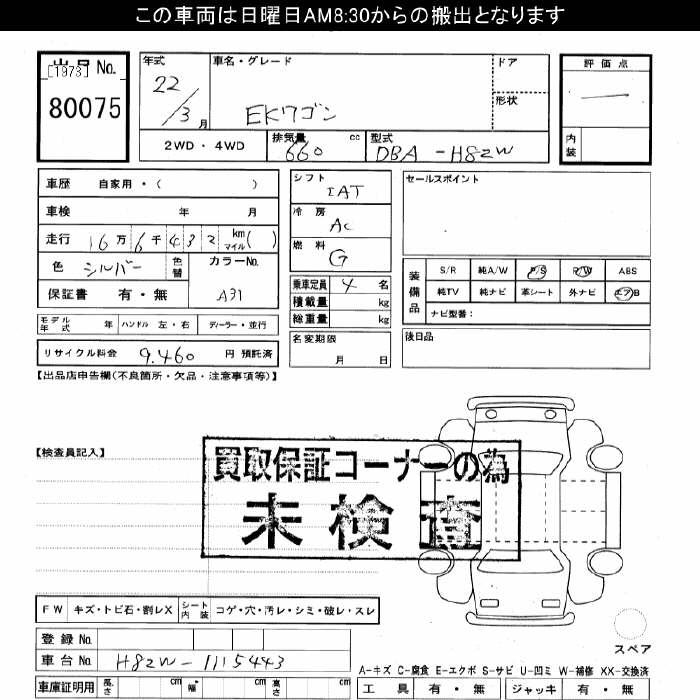 この車両は日曜日AM8:30からの搬出となります
出品No.
[1973]
80075
年式 22/3月
車名・グレード EKワゴン
ドア
形状
評価点 —
内装
2WD・4WD
排気量 660 cc
型式 DBA-H82W
車歴 自家用・( )
車検 年 月
走行 16万6千432 km マイル( )
色 シルバー 色替
カラーNo. A31
保証書 有・無
シフト IAT
冷房 AC
燃料 G
乗車定員 4名
積載量 kg
総重量 kg
名変期限 月 日
セールスポイント
装備品
S/R 純A/W P/S P/W ABS
純TV 純ナビ 革シート 外ナビ エアB
ナビ型番:
後日品
モデル年式 年 ハンドル 左・右 ディーラー・並行
リサイクル料金 9,460 円 預託済
【出品店申告欄(不良箇所・欠品・注意事項等)】
【検査員記入】
買取保証コーナーの為
未検査
FW キズ・トビ石・割レX シート内装 コゲ・穴・汚レ・シミ・破レ・スレ
登録No.
車台No. H82W-1115443
車庫証明用 長さ cm 幅 cm 高さ cm
スペア
A-キズ C-腐食 E-エクボ S-サビ U-凹ミ W-補修 XX-交換済
工具 有・無 ジャッキ 有・無